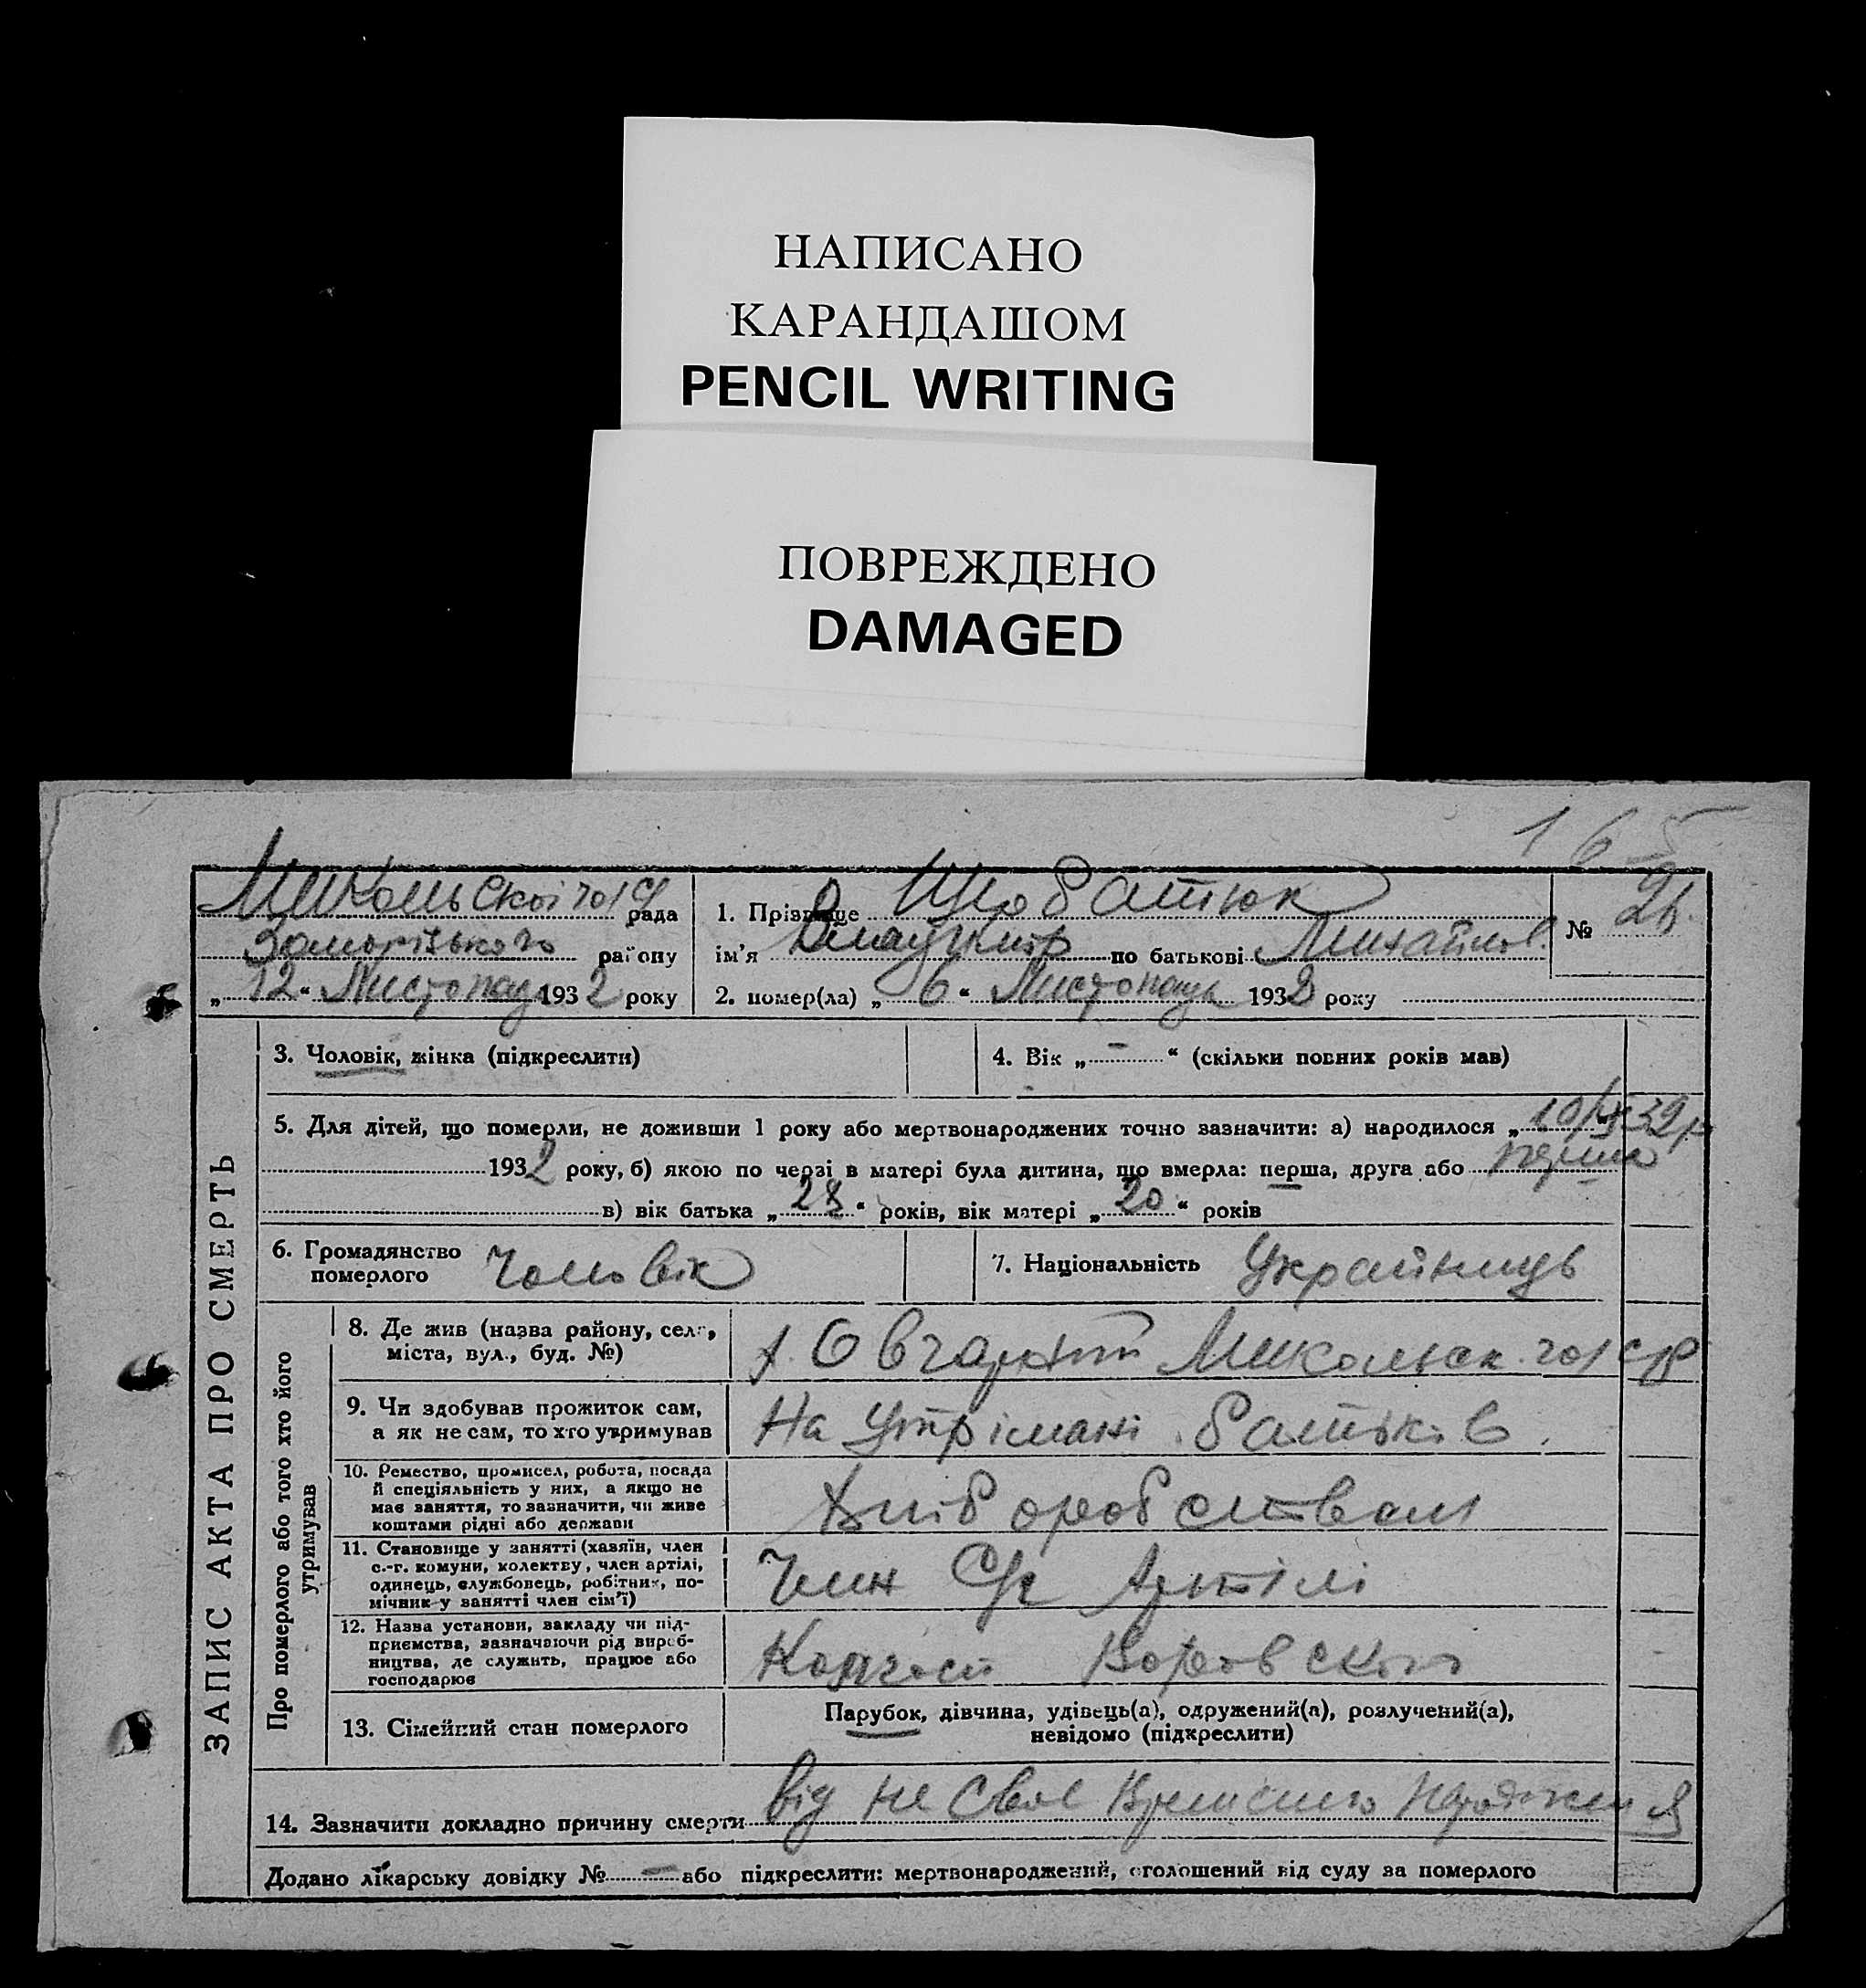 НАПИСАНО
КАРАНДАШОМ
PENCIL WRITING
ПОВРЕЖДЕНО
DAMAGED
165
рада
1. Прізвище Щербатюк
№ 26.
району
ім'я по батькові Михайлов.
„12“ Листопада 1932 року
2. помер(ла) „6“ Листопада 1932 року
ЗАПИС АКТА ПРО СМЕРТЬ
3. Чоловік, жінка (підкреслити)
4. Вік „-“ (скільки повних років мав)
5. Для дітей, що померли, не доживши 1 року або мертвонароджених точно зазначити: а) народилося „
1932 року, б) якою по черзі в матері була дитина, що вмерла: перша, друга або перша
в) вік батька „28“ років, вік матері „20“ років
6. Громадянство
померлого
Чоловік
7. Національність Украйниць
Про померлого або того хто його
утримував
8. Де жив (назва району, села,
міста, вул., буд. №)
9. Чи здобував прожиток сам,
а як не сам, то хто утримував
На утрімані батьків.
10. Ремество, промисел, робота, посада
й спеціяльність у них, а якщо не
має заняття, то зазначити, чи живе
коштами рідні або держави
Хліборобством
11. Становище у занятті (хазяїн, член
с.-г. комуни, колектву, член артілі,
одинець, службовець, робітник, по-
мічник у занятті член сім'ї)
Член Сг Артілі
12. Назва установи, закладу чи під-
приємства, зазначаючи рід вироб-
ництва, де служить, працює або
господарює
13. Сімейний стан померлого
Парубок, дівчина, удівець(а), одружений(а), розлучений(а),
невідомо (підкреслити)
14. Зазначити докладно причину смерти від не свое
Додано лікарську довідку № - або підкреслити: мертвонароджений, оголошений від суду за померлого